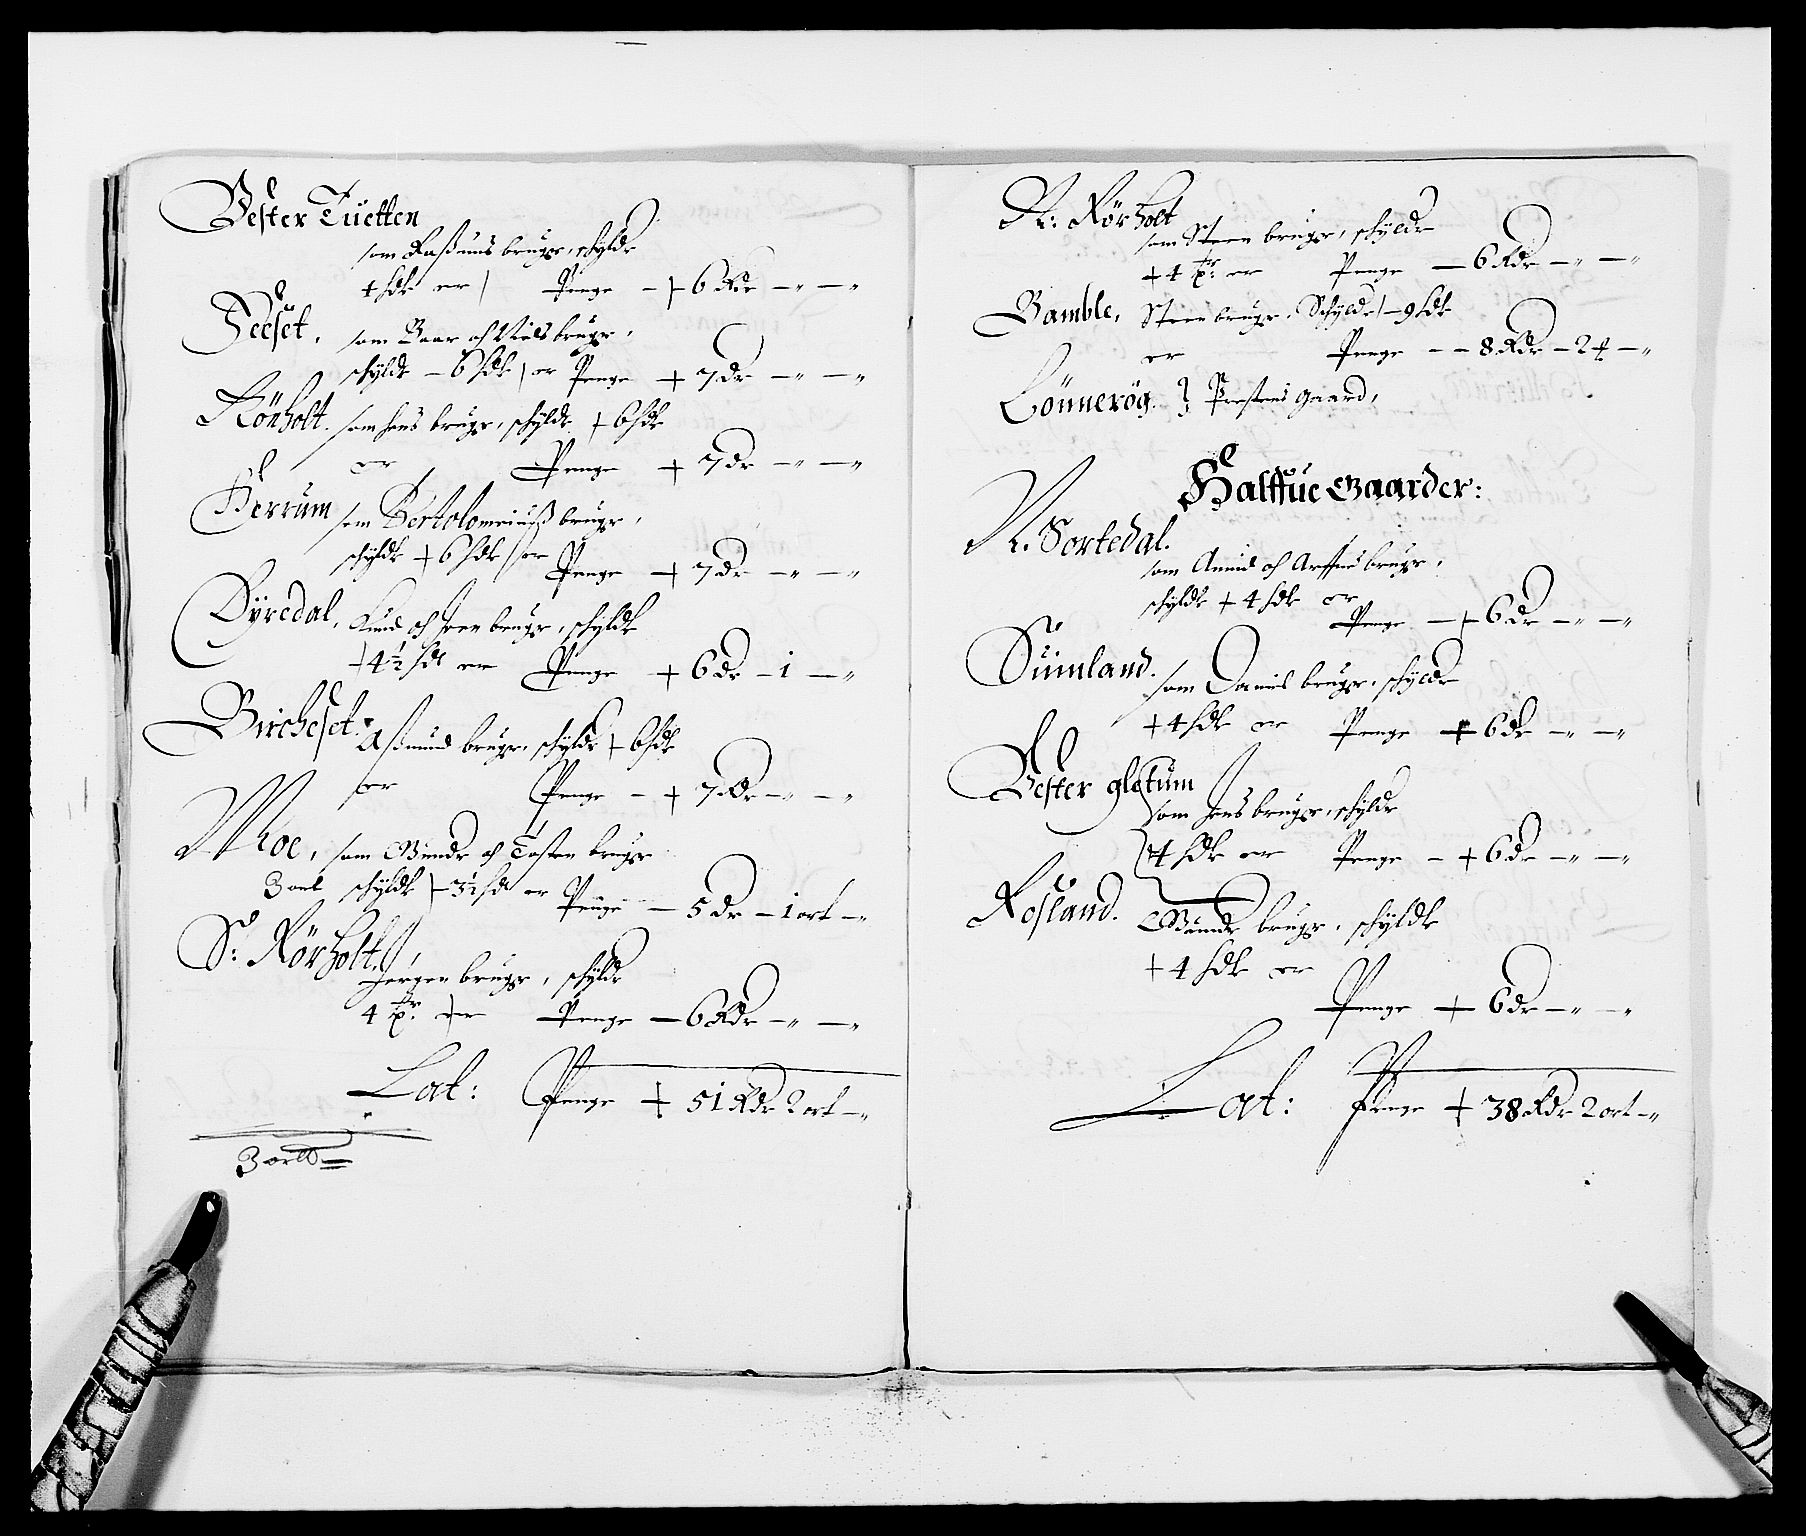 Vester Tuetten
som Rasmus bruger, schylder
4 hdr er Penge – 6 Rdr – „ – „
Feeset, som Baar och Niels bruger,
schylder – 6 hdr er Penge + 7 dr – „ – „
Rönholt. som Jens bruger, schylder + 6 hdr
er Penge + 7 dr – „ – „
Herrum som Bertolomeuß bruger,
schylder + 6 hdr er Penge + 7 dr – „ – „
Dyredal, Knud och bruger, schylder
+ 4½ hdr er Penge + 6 dr – 1 – „
Bircheset. Aßmund bruger, schylder + 6 hdr
er Penge – + 7 Rdr – „ – „
Moe, som Gunder och Tosten bruger
3 schylder – 3½ hdr er Penge – 5 dr – 1 ort – „
S: Rörholt. Jörgen bruger, schylder
4 er Penge – 6 Rdr – „ – „
Lat: Penge + 51 Rdr 2 ort – „
3
N: Rörholt
som Steen bruger, schylder
+ 4 er Penge – 6 Rdr – „ – „
Gamble, Steen bruger, Schylder – 9 hdr
er Penge – – 8 Rdr – 24 – „
Lönnerög. Prestens gaard,
Halffue Gaarder:
N. Sortedal.
som Anund och bruger,
schylder + 4 hdr er
Penge – 6 dr – „ – „
Sumland. som Daniel bruger, schylder
+ 4 hdr er Penge + 6 dr – „ – „
Vester gletum
som Jens bruger, schylder
4 hdr er Penge – + 6 dr – „ – „
Rosland. Gunder bruger, schylder
+ 4 hdr er
Penge + 6 dr – „ – „
Lat: Penge + 38 Rdr 2 ort – „